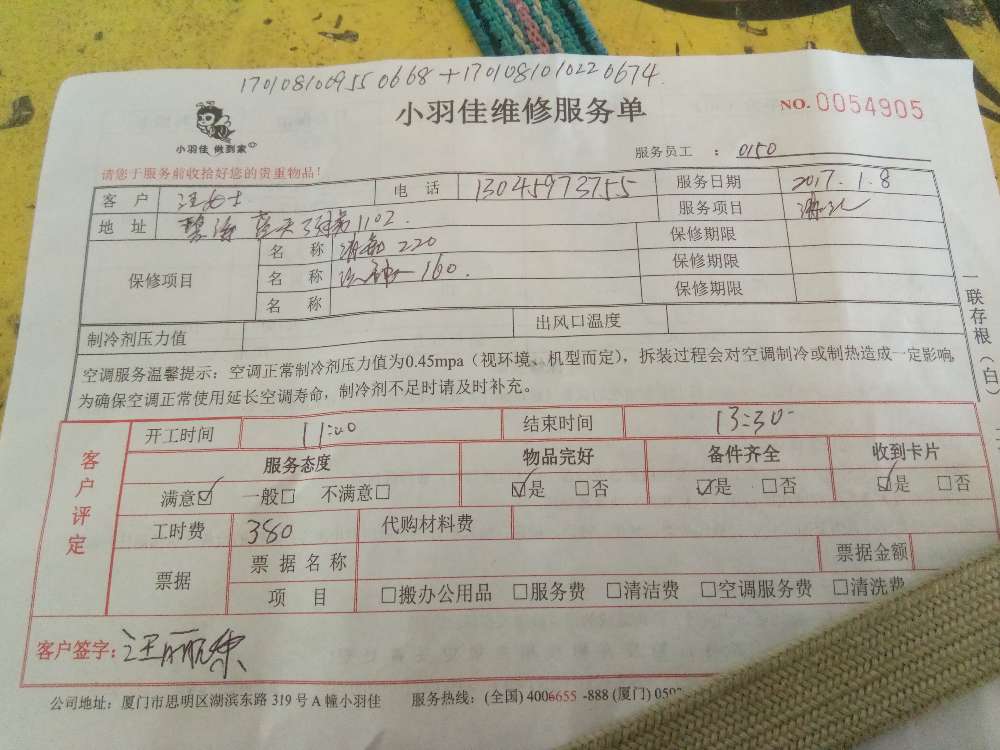 17010810095506 68+17010810102206 74
小羽佳维修服务单
NO. 0054905
小羽佳 做到家
服务员工 : 0150
请您于服务前收拾好您的贵重物品!
客户 汪女士 电话 13045973755 服务日期 2017.1.8
地址 1102. 服务项目
保修项目 名称 220 保修期限
名称 160. 保修期限
名称 保修期限
制冷剂压力值 出风口温度
空调服务温馨提示:空调正常制冷剂压力值为0.45mpa(视环境、机型而定),拆装过程会对空调制冷或制热造成一定影响,
为确保空调正常使用延长空调寿命,制冷剂不足时请及时补充。
一联存根(白)
客户评定
开工时间 11:00 结束时间 13:30
服务态度 物品完好 备件齐全 收到卡片
满意☑ 一般□ 不满意□ ☑是 □否 ☑是 □否 ☑是 □否
工时费 380 代购材料费
票据 票据名称 票据金额
项目 □搬办公用品 □服务费 □清洁费 □空调服务费 □清洗费
客户签字:
公司地址:厦门市思明区湖滨东路 319 号 A 幢小羽佳 服务热线:(全国) 4006655 -888 (厦门) 0592